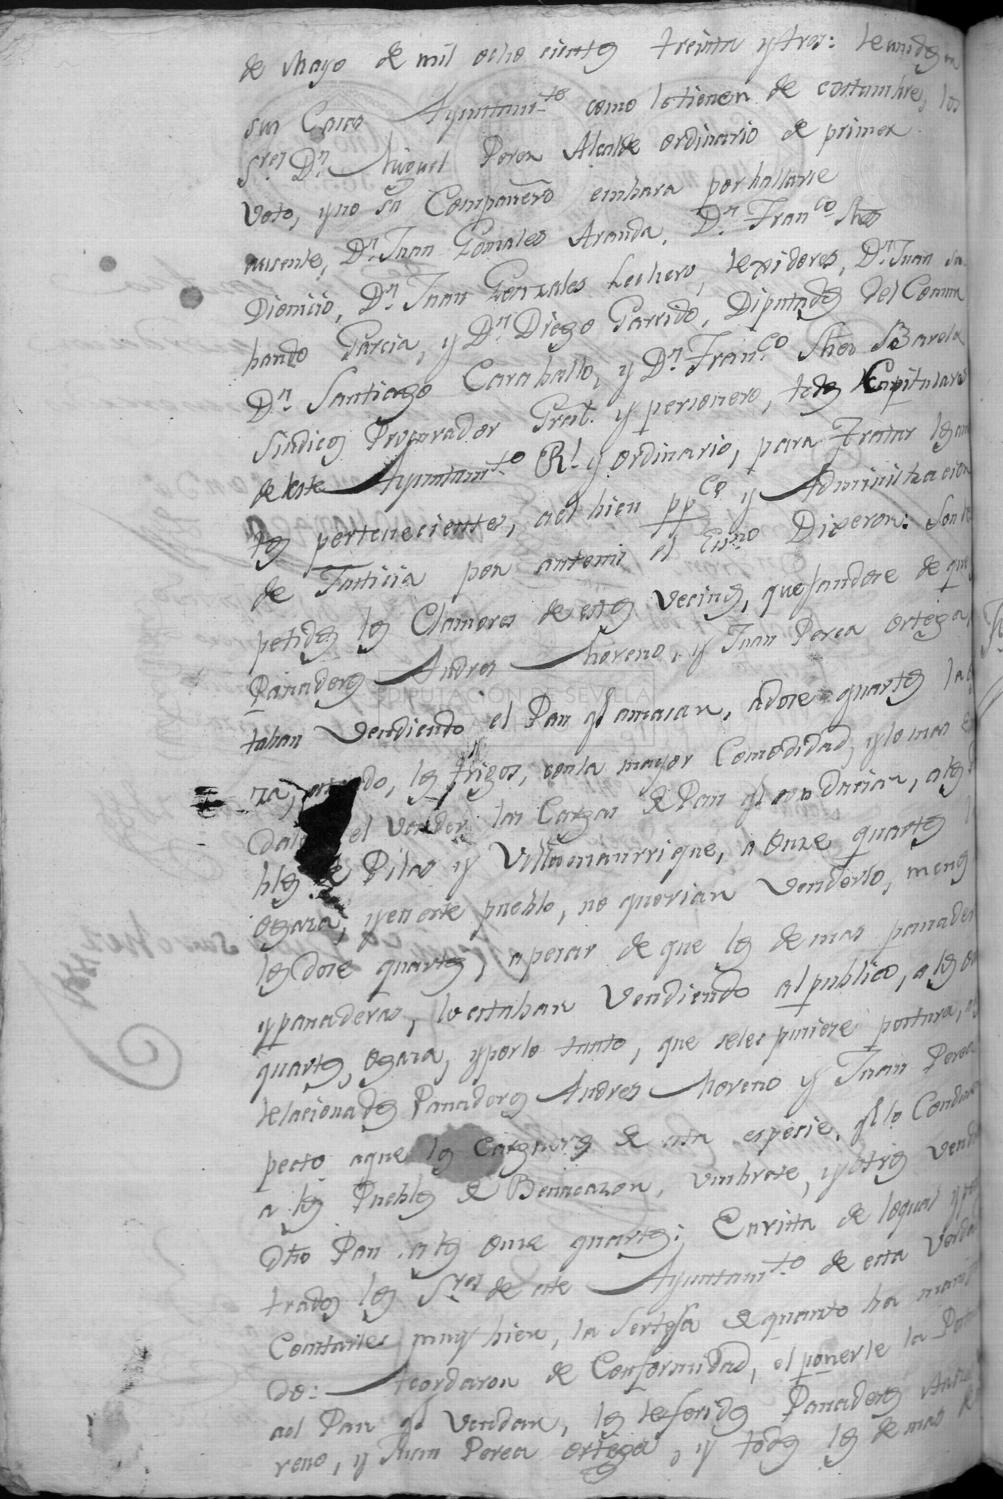 de Mayo de mil ocho cientos treinta y tres: Reunidos en
sus Casas Ayuntamto como lo tienen de costumbre, los
Sres Dn Miguel Perea Alcalde ordinario de primer
Voto, y no su Compañero embara por hallarse
ausente, Dn Juan Gonzales Aranda, Dn Franco Shes
Dionicio, Dn Juan Gonzales Lechero, Rexidores, Dn Juan
bando Garcia, y Dn Diego Garrido, Diputados del Comun
Dn Santiago Caraballo, y Dn Franco Shes Barola
Sindicos Procurador Gral. y personero, todos Capitulares
de este Ayuntamto Rl. y ordinario, para tratar los
tos pertenecientes, al bien ppco y Administracion
de Justicia por antemi el Esno Dixeron: Son re
petidos los Clamores de estos Vecinos, quejandose de que
Panaderos Andres Moreno, y Juan Perea Ortega,
taban Vendiendo el Pan qe amasan, a dose quartos la
za, do, los trigos, con la mayor Comodidad, y lo mas
el Vender las Cargas de Pan qe conducian, a los
blos de Pilas y Villamanrrique, a onze quartos
ogaza, y en este pueblo, no querian Venderlo, menos
los dose quartos, apesar de que los de mas panaderos
y panaderas, lo estaban Vendiendo al publico, a los
quartos, ogaza, y por lo tanto, que se les pusiese postura,
relacionados Panaderos Andres Moreno y Juan Perea
pecto aque los Cargueros de esta especie, qe lo Condu
a los Pueblos de Benacazon, Umbrete, y otros Vend
dho Pan a los onze quartos; En vista de lo qual y
trados los Sres de este Ayuntamto de esta Verdad
Constarles muy bien, la Serteza de quanto ha manif
do: Acordaron de Conformidad, el ponerle la Post
al Pan qe Vendan, los referidos Panaderos Andres
reno, y Juan Perea Ortega, y todos los de mas
DIPUTACIÓN DE SEVILLA